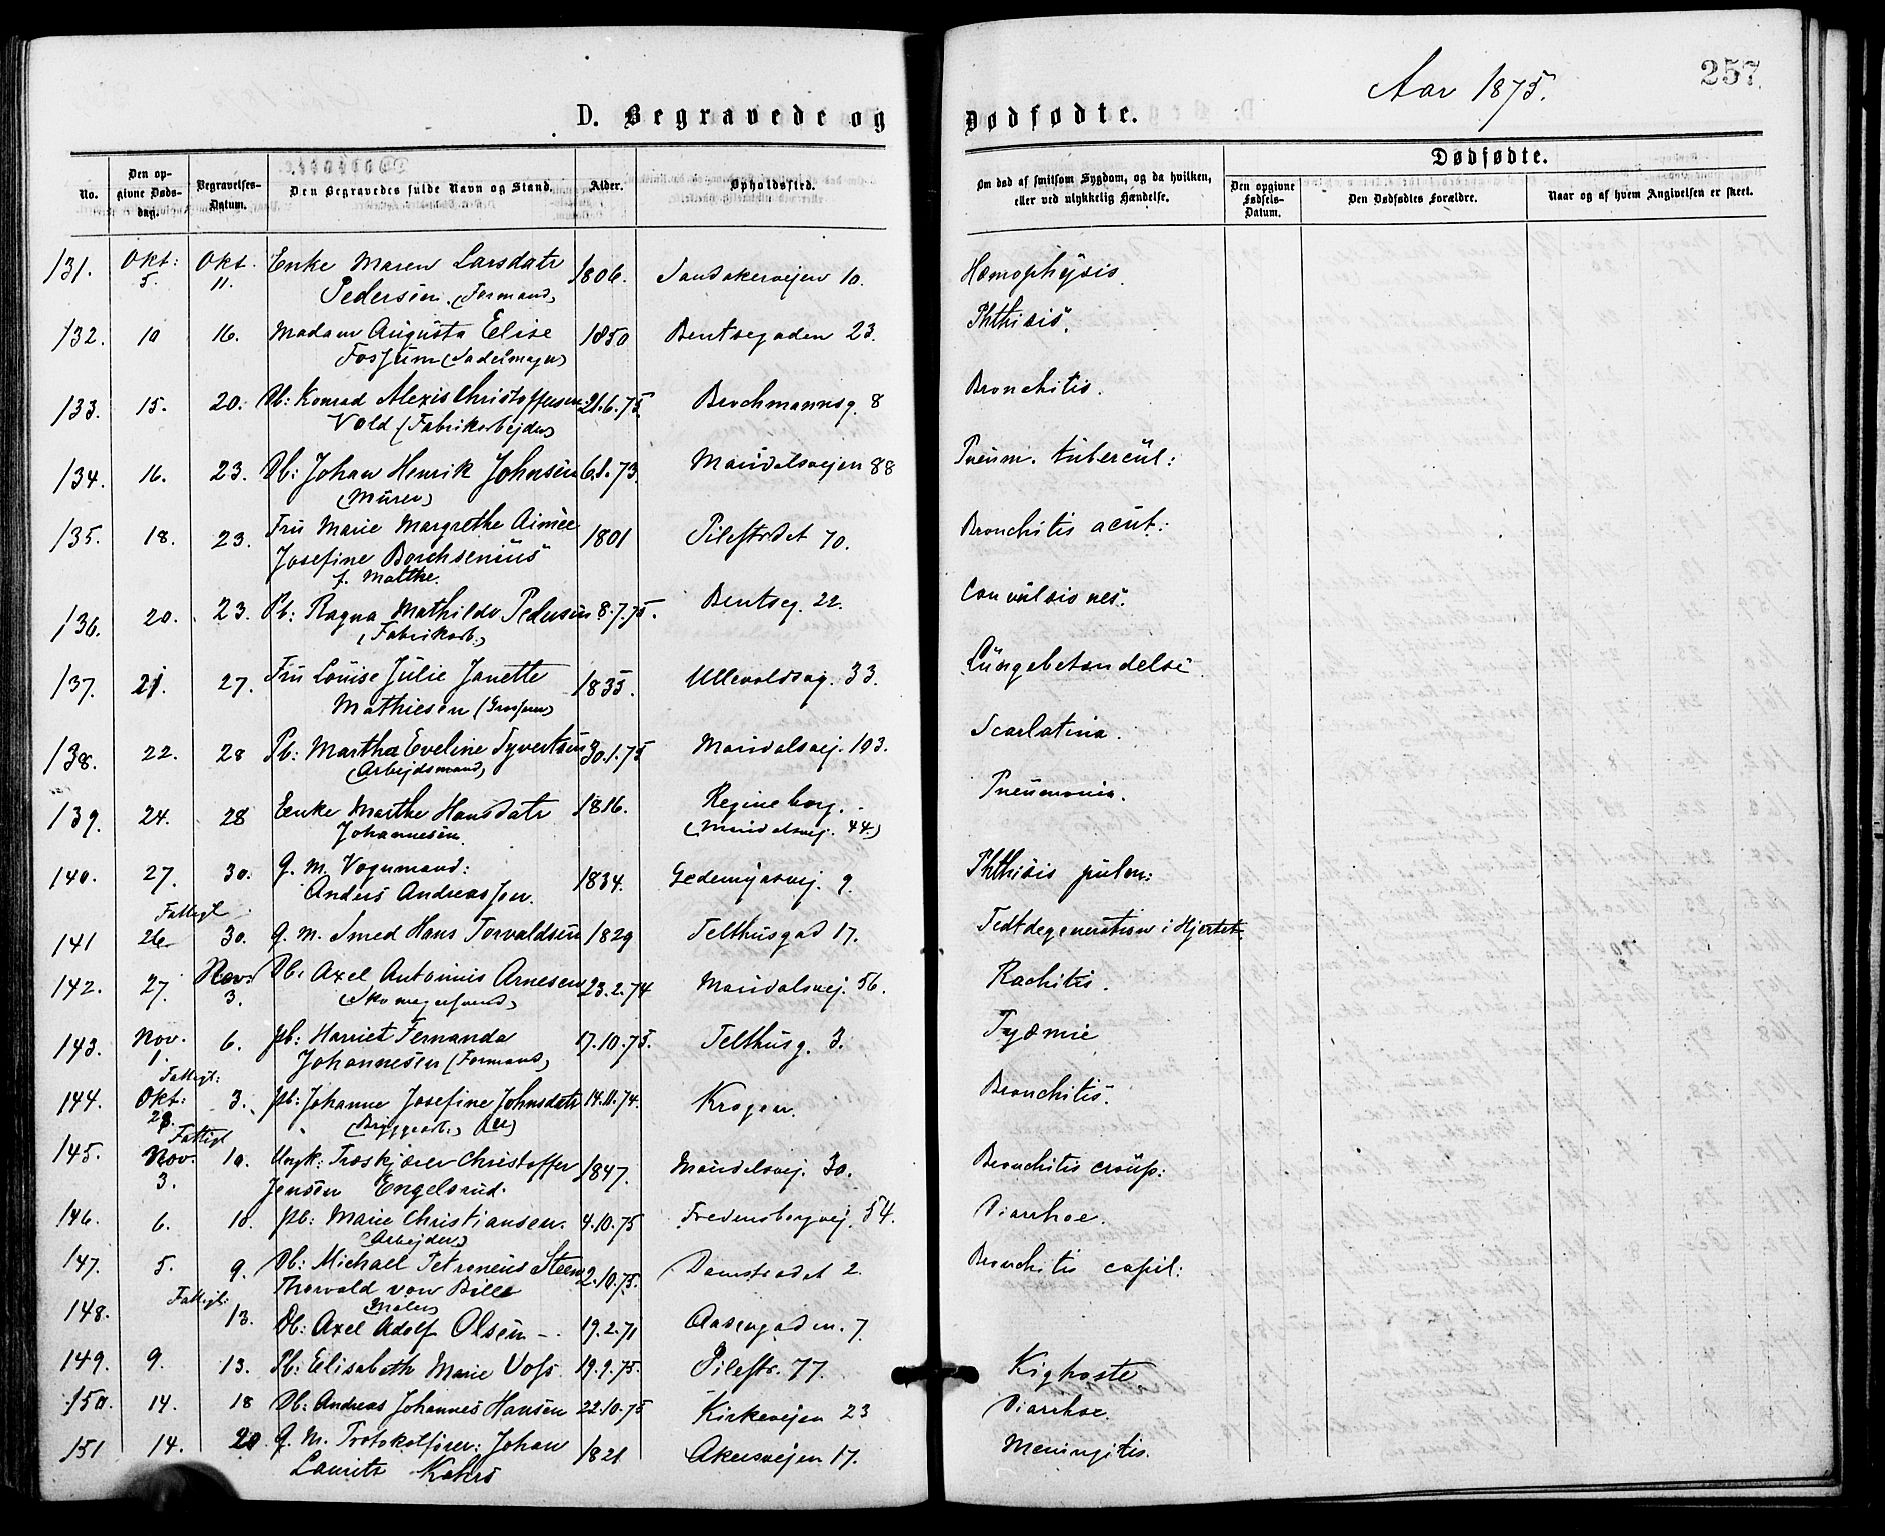 D. Begravede og Dødfødte.
Aar 1875.
257.
No.
Den opgivne Dødsdag.
Begravelses-Datum.
Den Begravedes fulde Navn og Stand.
Alder.
Opholdssted.
Om død af smitsom Sygdom, og da hvilken, eller ved ulykkelig Hændelse.
Dødfødte.
Den opgivne Fødsels-Datum.
Den Dødfødtes Forældre.
Naar og af hvem Angivelsen er skeet.
131. Okt: 5. Okt. 11. Enke Maren Larsdatr 1806. Sandakerveien 10. Hæmophysis.
Pedersen. (Formand)
132. 10 16. Madam Augusta Elise 1850 Bentsegaden 23. Phthisis.
Fossum (Sadelmager)
133. 15. 20. Db: Konrad Alexis Christoffersen 21.6.75. Brochmannsg. 8 Bronchitis.
Vold (Fabrikarbejder)
134. 16. 23. Db: Johan Henrik Johnsen 6.1.73. Maridalsvejen 88 Pneum. tubercul:
(Murer)
135. 18. 23. Fru Marie Margrethe Aimèe 1801 Pilestrdet 70. Bronchitis acut.:
Josefine Borchsenius
f. Malthe.
136. 20. 23. Pb: Ragna Mathilde Pedersen 8.7.75. Bentseg. 22. Convulsiones.
(Fabrikarb.)
137. 21. 27. Fru Louise Julie Janette 1835. Ullevoldsvg. 33. Lungebetændelse.
Mathiesen (Grosserer)
138. 22. 28 Pb: Martha Eveline Syvertsen 30.1.75 Maridalsvej. 103. Scarlatina.
(Arbejdsmand)
139. 24. 28 Enke Marthe Hansdatr 1816. Regineborg. Pneumonia.
Johannesen. (Maridalsvej. 44.)
140. 27. 30. G. M. Vognmand: 1834. Gedemyrsvej. 9. Phthisis pulm:
Anders Andreassen.
Fattigl
141 26 30. G. M. Smed Hans Torvaldsen 1829 Telthusgad 17. Fedtdegeneration i Hjertet.
142. 27. Nov. 3. Db: Axel Antonius Arnesen 23.2.74 Maridalsvej. 56. Rachitis.
(Skomagersvend)
143. Nov. 1. 6. Pb: Harriet Fernanda 17.10.75. Telthusg. 3. Pyæmie
Johannesen (Formand)
Fattigl:
144. Okt: 28. 3. Pb: Johanne Josefine Johnsdatr 14.11.74. Krogen. Bronchitis.
(Bryggearb.)
Fattigl
145. Nov. 3. 10. Ungk: Træskjærer Christoffer 1847. Maridalsvej. 30. Bronchitis croup:
Jensen Engelsrud.
146. 6. 10. Pb: Marie Christiansen. 4.10.75 Fredensborgvej. 54. Diarrhoe.
(Arbejder)
147. 5. 9. Db: Michael Petronius Steen 2.10.75. Damstrædet 2. Bronchitis capil:
Thorvald von Bille
(Maler)
Fattigl:
148. 13. Db: Axel Adolf Olsen - 19.2.71 Aasengaden. 7
149. 9. 13. Pb: Elisabeth Marie Voss 19.9.75. Pilestr. 77. Kighoste
150. 14. 18 Db: Andreas Johannes Hansen 22.10.75 Kirkevejen 23 Diarrhoe.
151 14. 20. G. M. Protokolfører: Johan 1821 Akersvejen 17. Meningitis.
Lauritz Kahrs